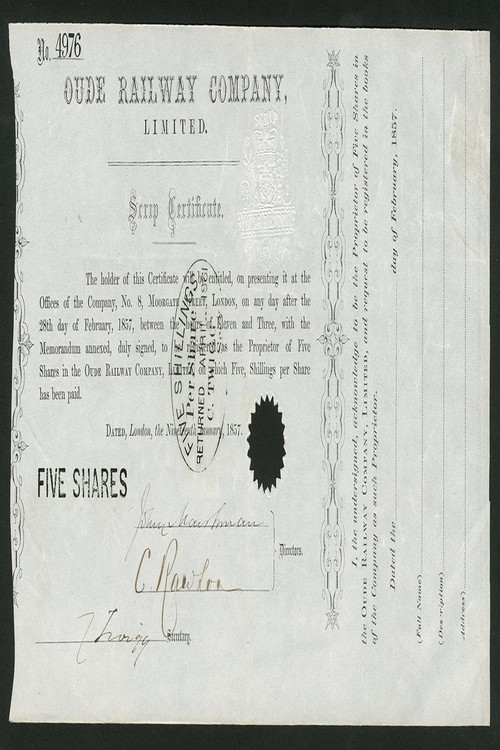 No. 4976
OUDE RAILWAY COMPANY,
LIMITED.
Scrip Certificate.
The holder of this Certificate will be entitled, on presenting it at the
Offices of the Company, No. 8, MOORGATE STREET, LONDON, on any day after the
28th day of February, 1857, between the hours of Eleven and Three, with the
Memorandum annexed, duly signed, to be registered as the Proprietor of Five
Shares in the OUDE RAILWAY COMPANY, LIMITED, on which Five, Shillings per Share
has been paid.
DATED, London, the Nineteenth January, 1857.
FIVE SHILLINGS
Per Share
RETURNED APRIL
C. TWIGG
FIVE SHARES
John Marshman
C. Rawson
Directors.
Twigg
Secretary.
I, the undersigned, acknowledge to be the Proprietor of Five Shares in
the OUDE RAILWAY COMPANY, LIMITED, and request to be registered in the books
of the Company as such Proprietor.
Dated the day of February, 1857.
(Full Name)
(Description)
Address)